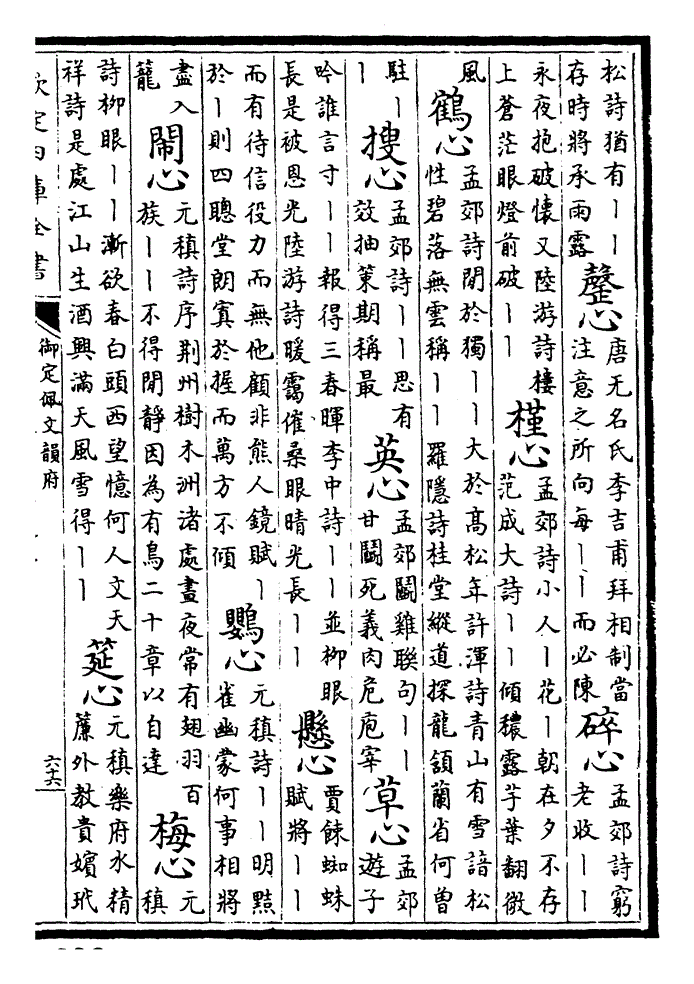 松詩猶有丨丨
存時將承雨露
罄心
唐无名氏李吉甫拜相制當
注意之所向每丨丨而必陳
碎心
孟郊詩窮
老收丨丨
永夜抱破懷又陸游詩樓
上蒼茫眼燈前破丨丨
槿心
孟郊詩小人丨花丨朝在夕不存
范成大詩丨丨傾穠露芋葉翻微
風
鶴心
孟郊詩閒於獨丨丨大於高松年許渾詩青山有雪諳松
性碧落無雲稱丨丨羅隱詩桂堂縱道探龍頷蘭省何曾
駐丨
丨
搜心
孟郊詩丨丨思有
效抽策期稱最
英心
孟郊鬭雞聯句丨丨
甘鬭死義肉危庖宰
草心
孟郊
遊子
吟誰言寸丨丨報得三春暉李中詩丨丨並柳眼
長是被恩光陸游詩暖靄催桑眼晴光長丨丨
懸心
賈餗蜘蛛
賦將丨丨
而有待信役力而無他顧非熊人鏡賦丨
於丨則四聰堂朗寘於握而萬方不傾
鸚心
元稹詩丨丨明黠
雀幽蒙何事相將
盡入
籠
鬧心
元稹詩序荆州樹木洲渚處晝夜常有翅羽百
族丨丨不得閒靜因為有鳥二十章以自達
梅心
元
稹
詩柳眼丨丨漸欲春白頭西望憶何人文天
祥詩是處江山生酒興滿天風雪得丨丨
筵心
元稹樂府水精
簾外教貴嬪玳
欽定四庫全書
御定佩文韻府
六十六